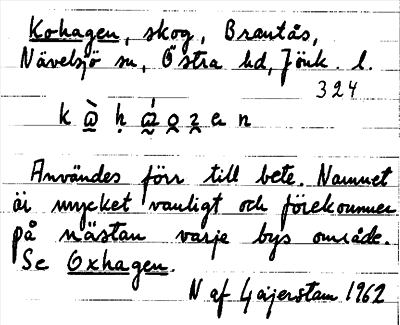 Kohagen, skog, Brantås,
Nävelsjö sn, Östra hd, Jönk. l.
324
Användes förr till bete. Namnet
är mycket vanligt och förekommer
på nästan varje bys område.
Se Oxhagen.
N af Gäjerstam 1962